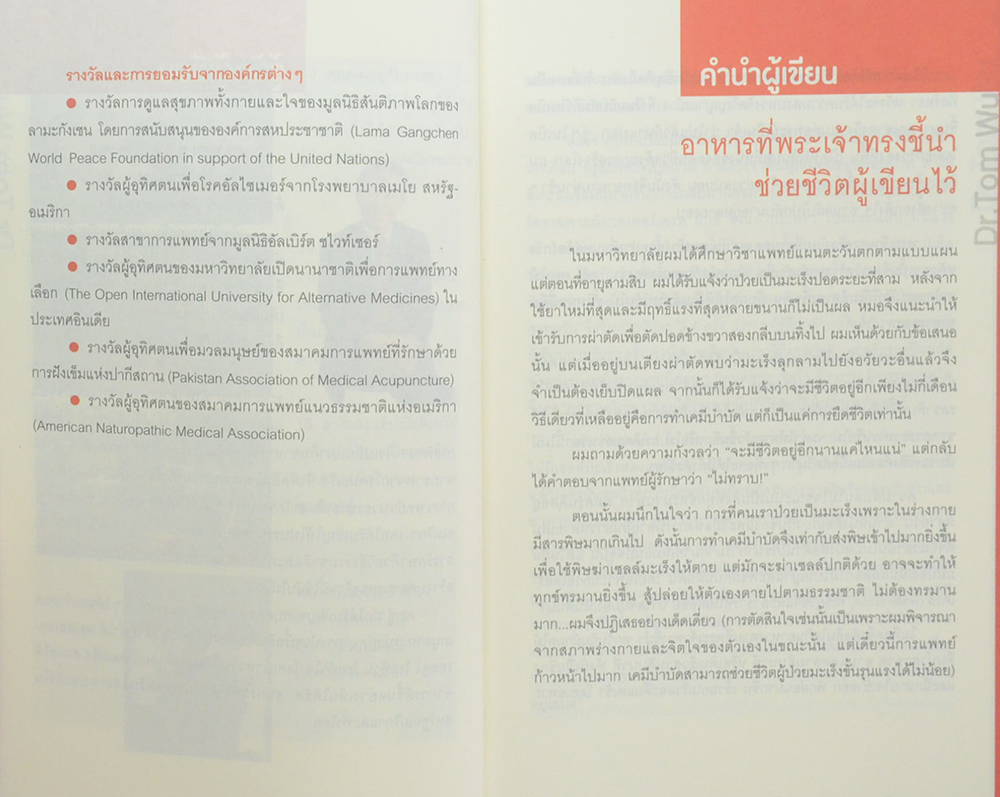 รางวัลและการยอมรับจากองค์กรต่างๆ
● รางวัลการดูแลสุขภาพทั้งกายและใจของมูลนิธิสันติภาพโลกของ
ลามะกังเชน โดยการสนับสนุนขององค์การสหประชาชาติ (Lama Gangchen
World Peace Foundation in support of the United Nations)
● รางวัลผู้อุทิศตนเพื่อโรคอัลไซเมอร์จากโรงพยาบาลเมโย สหรัฐ-
อเมริกา
● รางวัลสาขาการแพทย์จากมูลนิธิอัลเบิร์ต ชไวท์เซอร์
● รางวัลผู้อุทิศตนของมหาวิทยาลัยเปิดนานาชาติเพื่อการแพทย์ทาง
เลือก (The Open International University for Alternative Medicines) ใน
ประเทศอินเดีย
● รางวัลผู้อุทิศตนเพื่อมวลมนุษย์ของสมาคมการแพทย์ที่รักษาด้วย
การฝังเข็มแห่งปากีสถาน (Pakistan Association of Medical Acupuncture)
● รางวัลผู้อุทิศตนของสมาคมการแพทย์แนวธรรมชาติแห่งอเมริกา
(American Naturopathic Medical Association)
คำนำผู้เขียน
อาหารที่พระเจ้าทรงชี้นำ
ช่วยชีวิตผู้เขียนไว้
Dr.Tom Wu
ในมหาวิทยาลัยผมได้ศึกษาวิชาแพทย์แผนตะวันตกตามแบบแผน
แต่ตอนที่อายุสามสิบ ผมได้รับแจ้งว่าป่วยเป็นมะเร็งปอดระยะที่สาม หลังจาก
ใช้ยาใหม่ที่สุดและมีฤทธิ์แรงที่สุดหลายขนานก็ไม่เป็นผล หมอจึงแนะนำให้
เข้ารับการผ่าตัดเพื่อตัดปอดข้างขวาสองกลีบบนทิ้งไป ผมเห็นด้วยกับข้อเสนอ
นั้น แต่เมื่ออยู่บนเตียงผ่าตัดพบว่ามะเร็งลุกลามไปยังอวัยวะอื่นแล้วจึง
จำเป็นต้องเย็บปิดแผล จากนั้นก็ได้รับแจ้งว่าจะมีชีวิตอยู่อีกเพียงไม่กี่เดือน
วิธีเดียวที่เหลืออยู่คือการทำเคมีบำบัด แต่ก็เป็นแค่การยืดชีวิตเท่านั้น
ผมถามด้วยความกังวลว่า “จะมีชีวิตอยู่อีกนานแค่ไหนแน่” แต่กลับ
ได้คำตอบจากแพทย์ผู้รักษาว่า “ไม่ทราบ!”
ตอนนั้นผมนึกในใจว่า การที่คนเราป่วยเป็นมะเร็งเพราะในร่างกาย
มีสารพิษมากเกินไป ดังนั้นการทำเคมีบำบัดจึงเท่ากับส่งพิษเข้าไปมากยิ่งขึ้น
เพื่อใช้พิษฆ่าเซลล์มะเร็งให้ตาย แต่มักจะฆ่าเซลล์ปกติด้วย อาจจะทำให้
ทุกข์ทรมานยิ่งขึ้น สู้ปล่อยให้ตัวเองตายไปตามธรรมชาติ ไม่ต้องทรมาน
มาก...ผมจึงปฏิเสธอย่างเด็ดเดี่ยว (การตัดสินใจเช่นนั้นเป็นเพราะผมพิจารณา
จากสภาพร่างกายและจิตใจของตัวเองในขณะนั้น แต่เดี๋ยวนี้การแพทย์
ก้าวหน้าไปมาก เคมีบำบัดสามารถช่วยชีวิตผู้ป่วยมะเร็งขั้นรุนแรงได้ไม่น้อย)